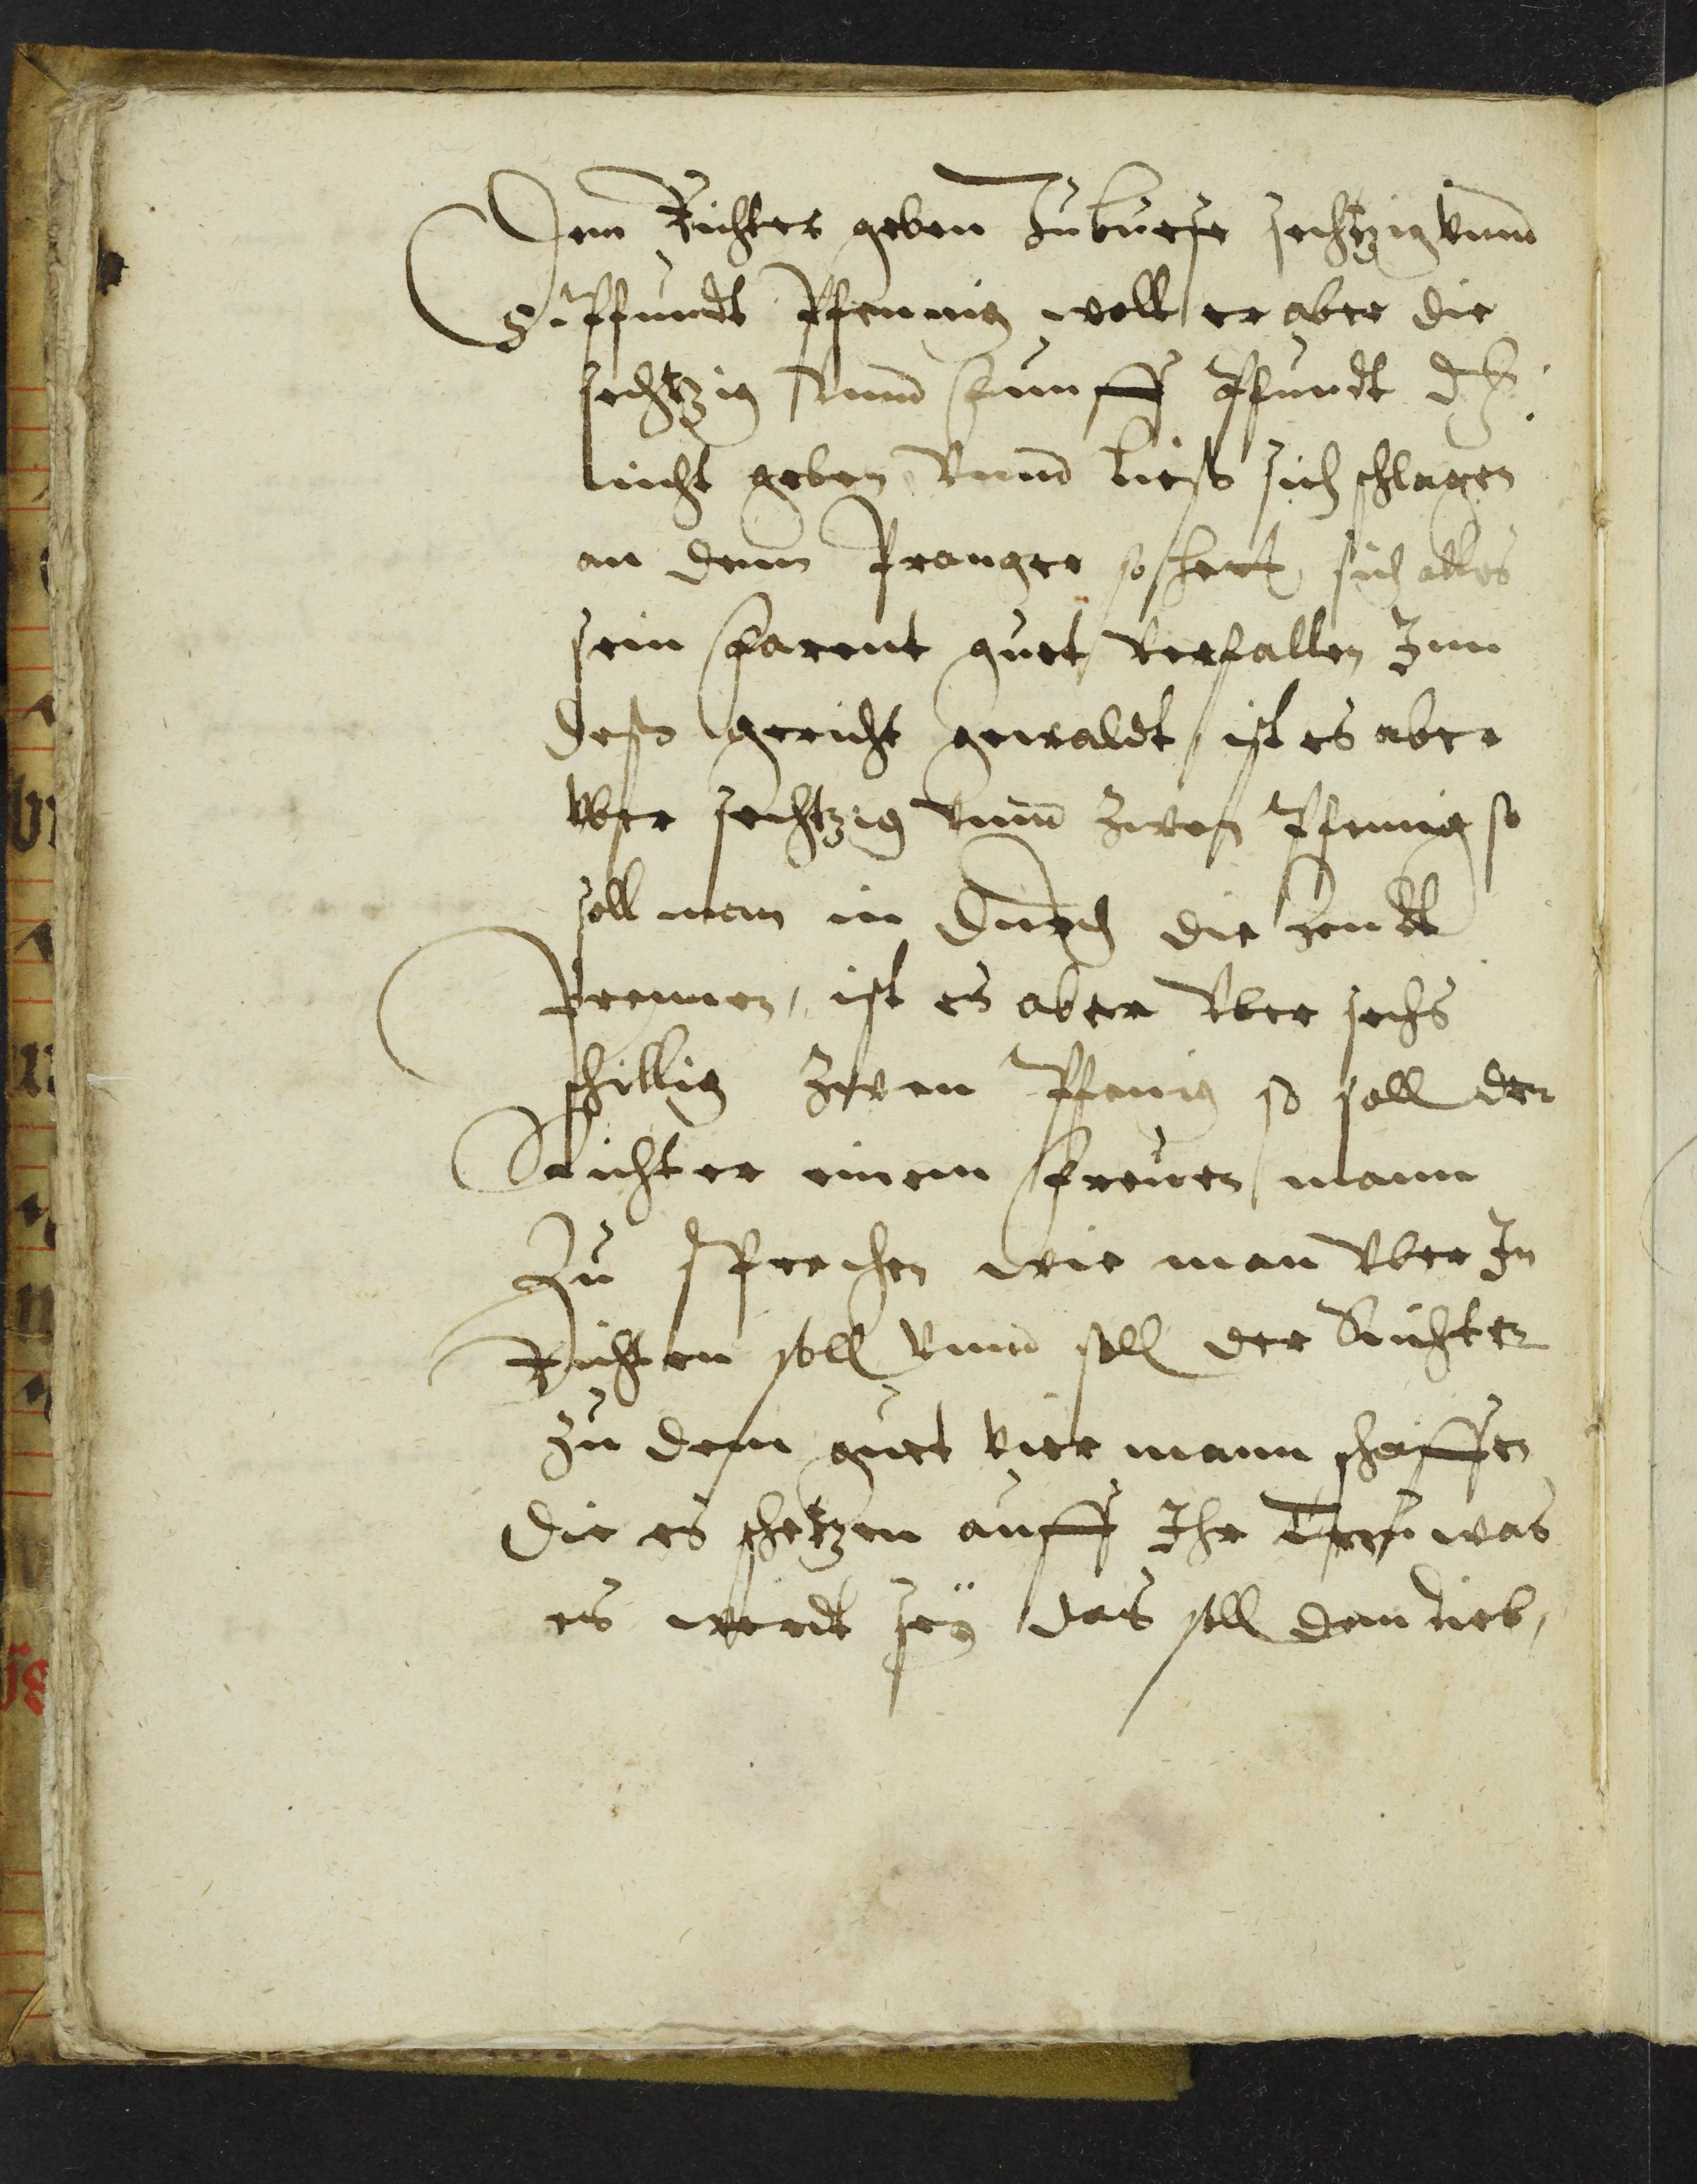 Dem Richter geben Zubuese sechtzig vnnd
5 Pfundt Pfennig woll er aber die
sechtzig Vnnd funff Pfundt d
nicht geben Vnnd liess sich schlagen
an denn Pranger so hat sich alles
sein farent guet Verfallen Inn
dess gericht gewaldt, ist es aber
vber sechtzig vnnd zwen Pfennig so
soll man in durch die hendt
Prennen, ist es aber Vber sechs
schillig zwen Pfenig so soll der
Richter einem freuen mann
Zu sprechen wie man Vber In
Richten soll Vnnd soll der Richter
zu dem guet vier mann schaffen
die es schetzen auff Ihr Treu was
es werdt seÿ das soll dem dieb,